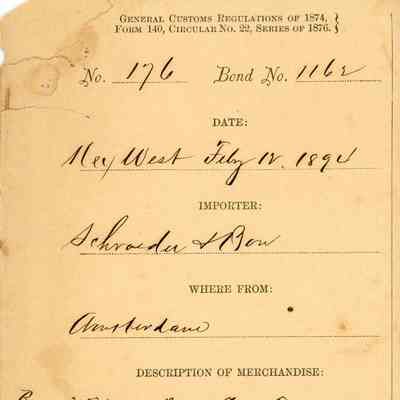 GENERAL CUSTOMS REGULATIONS OF 1874,
FORM 140, CIRCULAR NO. 22, SERIES OF 1876.
No. 176 Bond No. 1162
DATE:
Key West Feby 12. 1894
IMPORTER:
Schroeder & Bon
WHERE FROM:
Amsterdam
DESCRIPTION OF MERCHANDISE: